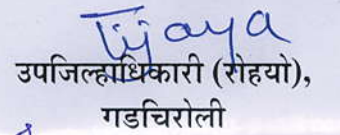 Vijaya
उपजिल्हाधिकारी (रोहयो),
गडचिरोली